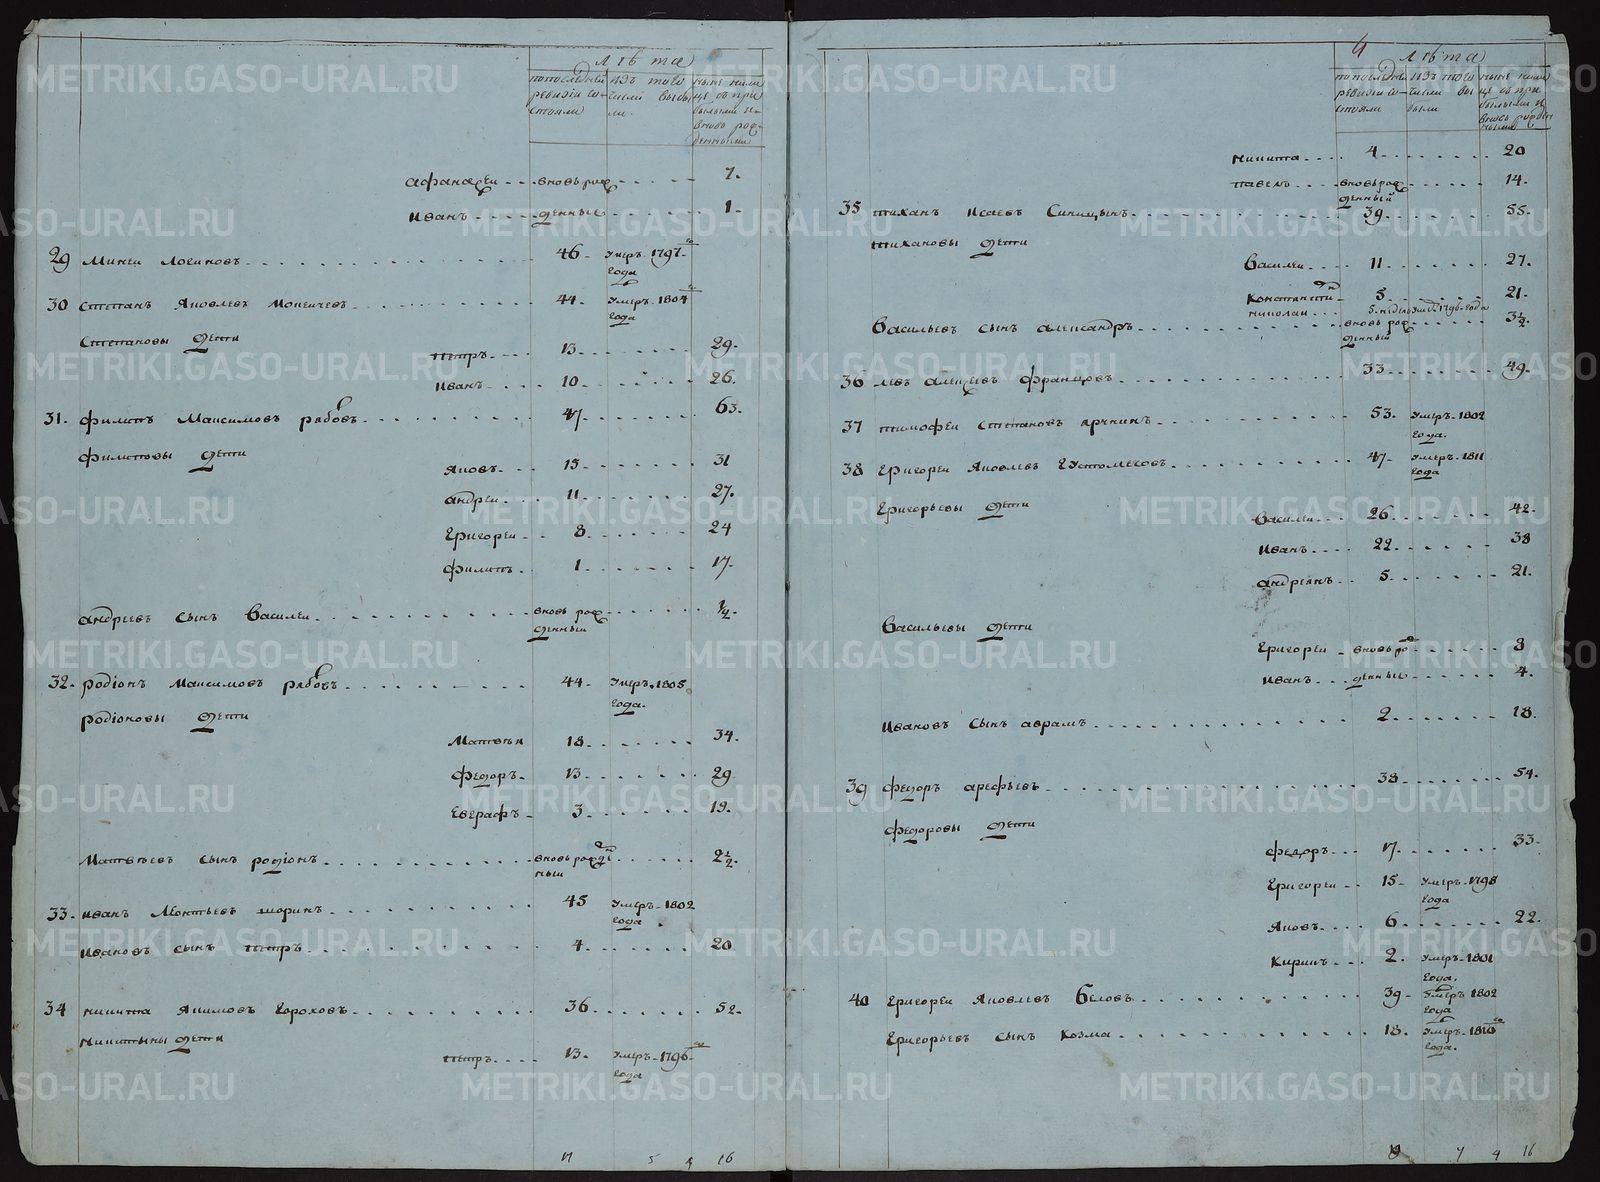 лѣта
попоследней ревизіи состояли
изъ того числа выбыли.
ныне налице съ прибылыми и вновь рожденными
афанасеи вновь рож 7.
иванъ денные 1.
29 Минеи Логиновъ 46. умеръ 1797го года
30 степанъ Яковлевъ 44. умеръ 1804го года
степановы дети
петръ 13 29.
иванъ 10 26.
31. филипъ Максимовъ рябовъ 47 63.
филиповы дети
яковъ 15 31
андреи 11 27.
григореи 8 24
филипъ 1 17.
андреевъ сынъ василеи вновь рожденный 1/4
32. родіонъ Максимовъ рябовъ 44. умеръ 1805 года.
родіоновы дети
Матвеи 18 34.
федоръ 13 29
Евграфъ 3 19.
Матвеевъ сынъ родіонъ вновь рожденный 2 1/2
33. иванъ Леонтьевъ шоринъ 45 умеръ 1802 года
ивановъ сынъ петръ 4 20
34 никита Якимовъ гороховъ 36 52.
никитины дети
петръ 13. умеръ 1796го года
17 5 4 16
4
лѣта
попоследней ревизіи состояли
изъ того числа выбыли
ныне налице съ прибылыми и вновь рожденными
никита 4 20
павелъ вновь рожденный 14.
35 тиханъ Исаевъ Синицынъ 39 55.
тихановы дети
василеи 11 27.
константинъ 5 21.
николаи 5 недель умеръ 1796 года
васильевъ сынъ александръ вновь рожденный 3 1/2
36 левъ алексеевъ францовъ 33 49.
37 тимофеи степановъ 53. умеръ 1802 года.
38 григореи Яковлевъ густомесовъ 47. умеръ 1811 года
григорьевы дети
василеи 26 42.
иванъ 22 38
андреянъ 5 21.
васильевы дети
григореи вновь ро 8
иванъ жденные 4.
ивановъ сынъ аврамъ 2 18.
39 федоръ арефьевъ 38 54.
федоровы дети
федоръ 17 33.
григореи 15 умеръ 1798 года
яковъ 6 22.
Кирикъ 2. умеръ 1801 года.
40 григореи Яковлевъ Беловъ 39 умеръ 1802 года
григорьевъ сынъ козма 18. умеръ 1810го года.
7 4 16
METRIKI.GASO-URAL.RU